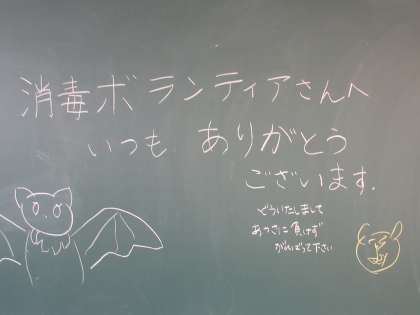 消毒ボランティアさんへ
いつも ありがとう
ございます.
どういたしまして
あつさに負けず
がんばって下さい